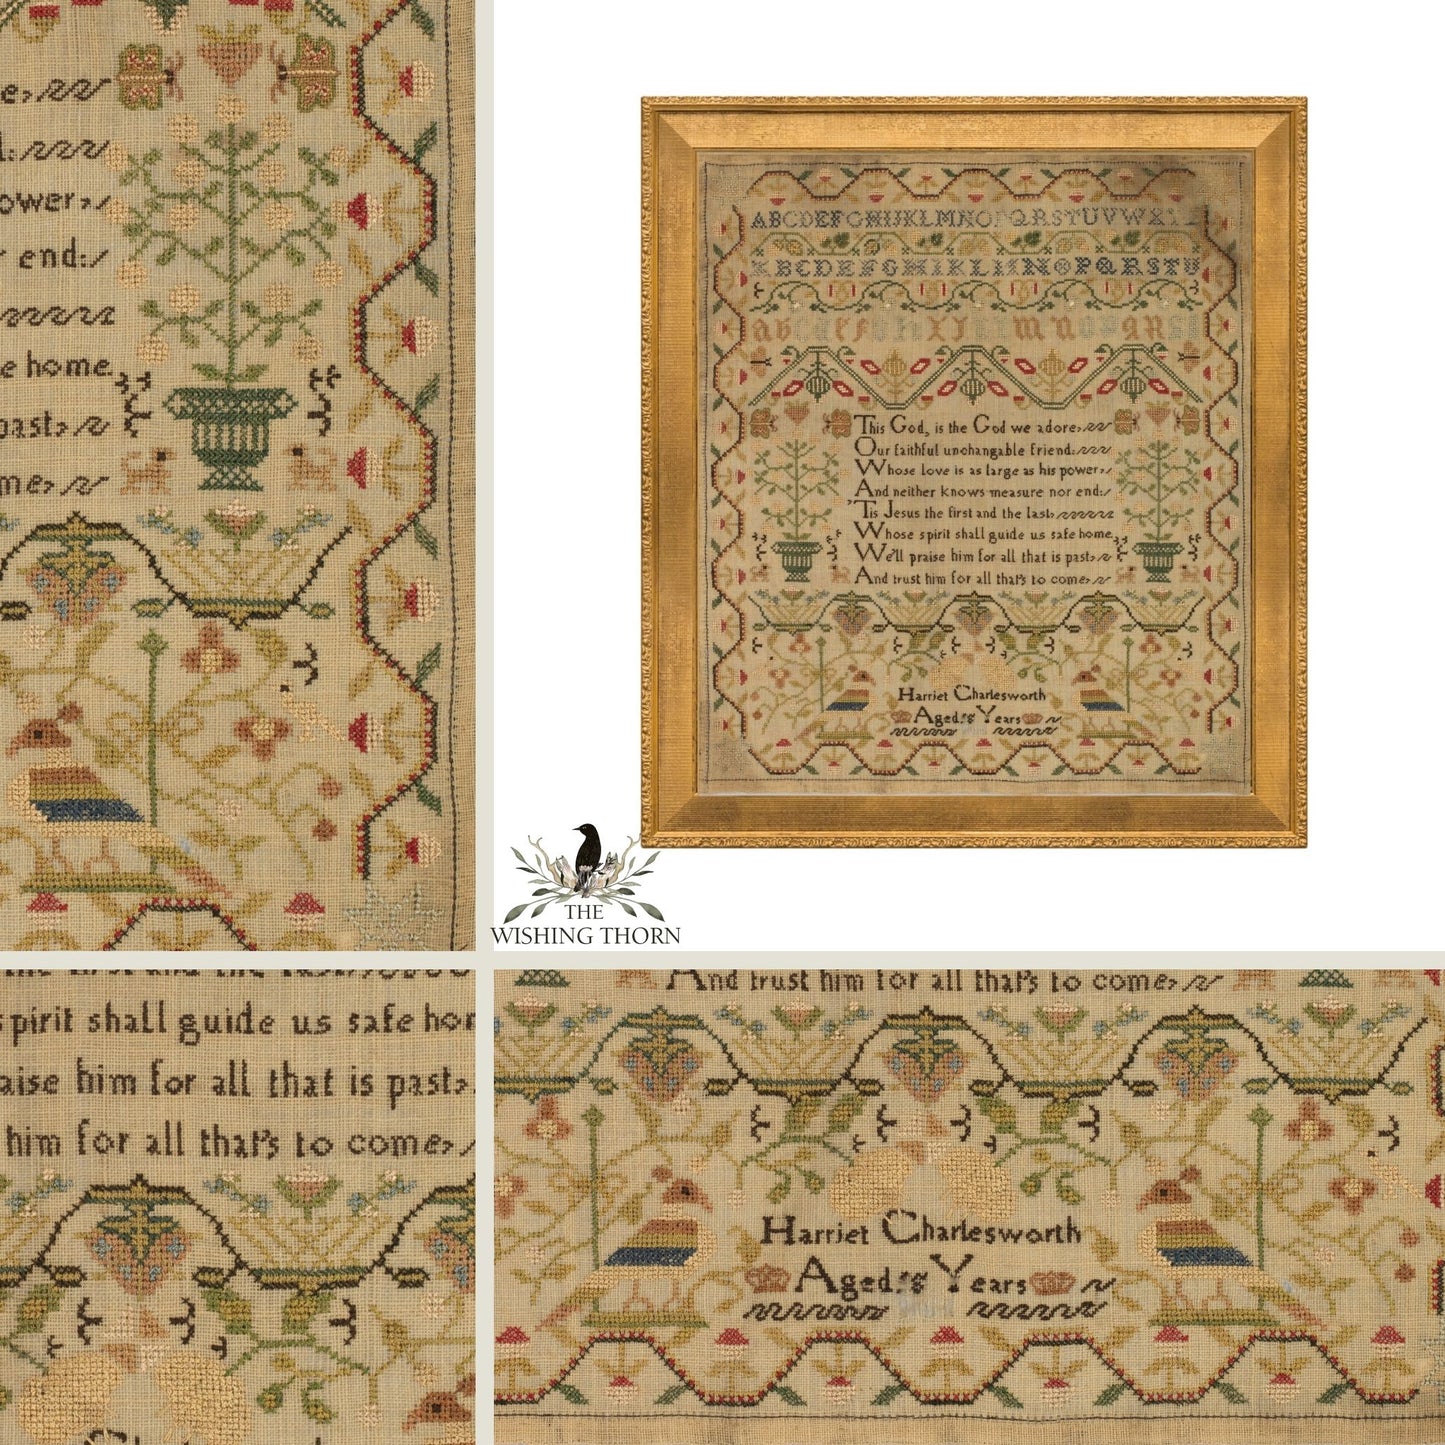 e,
d:
ower,
r end:
e home
past,
me,
ABCDEFGHIJKLMNOPQRSTUVWXYZ
ABCDEFGHIKLMNOPQRSTU
This God, is the God we adore,
Our faithful unchangable friend:
Whose love is as large as his power,
And neither knows measure nor end:
'Tis Jesus the first and the last,
Whose spirit shall guide us safe home,
We'll praise him for all that is past,
And trust him for all that's to come,
Harriet Charlesworth
Aged Years
THE
WISHING THORN
spirit shall guide us safe hom
aise him for all that is past,
him for all that's to come,
And trust him for all that's to come,
Harriet Charlesworth
Aged Years